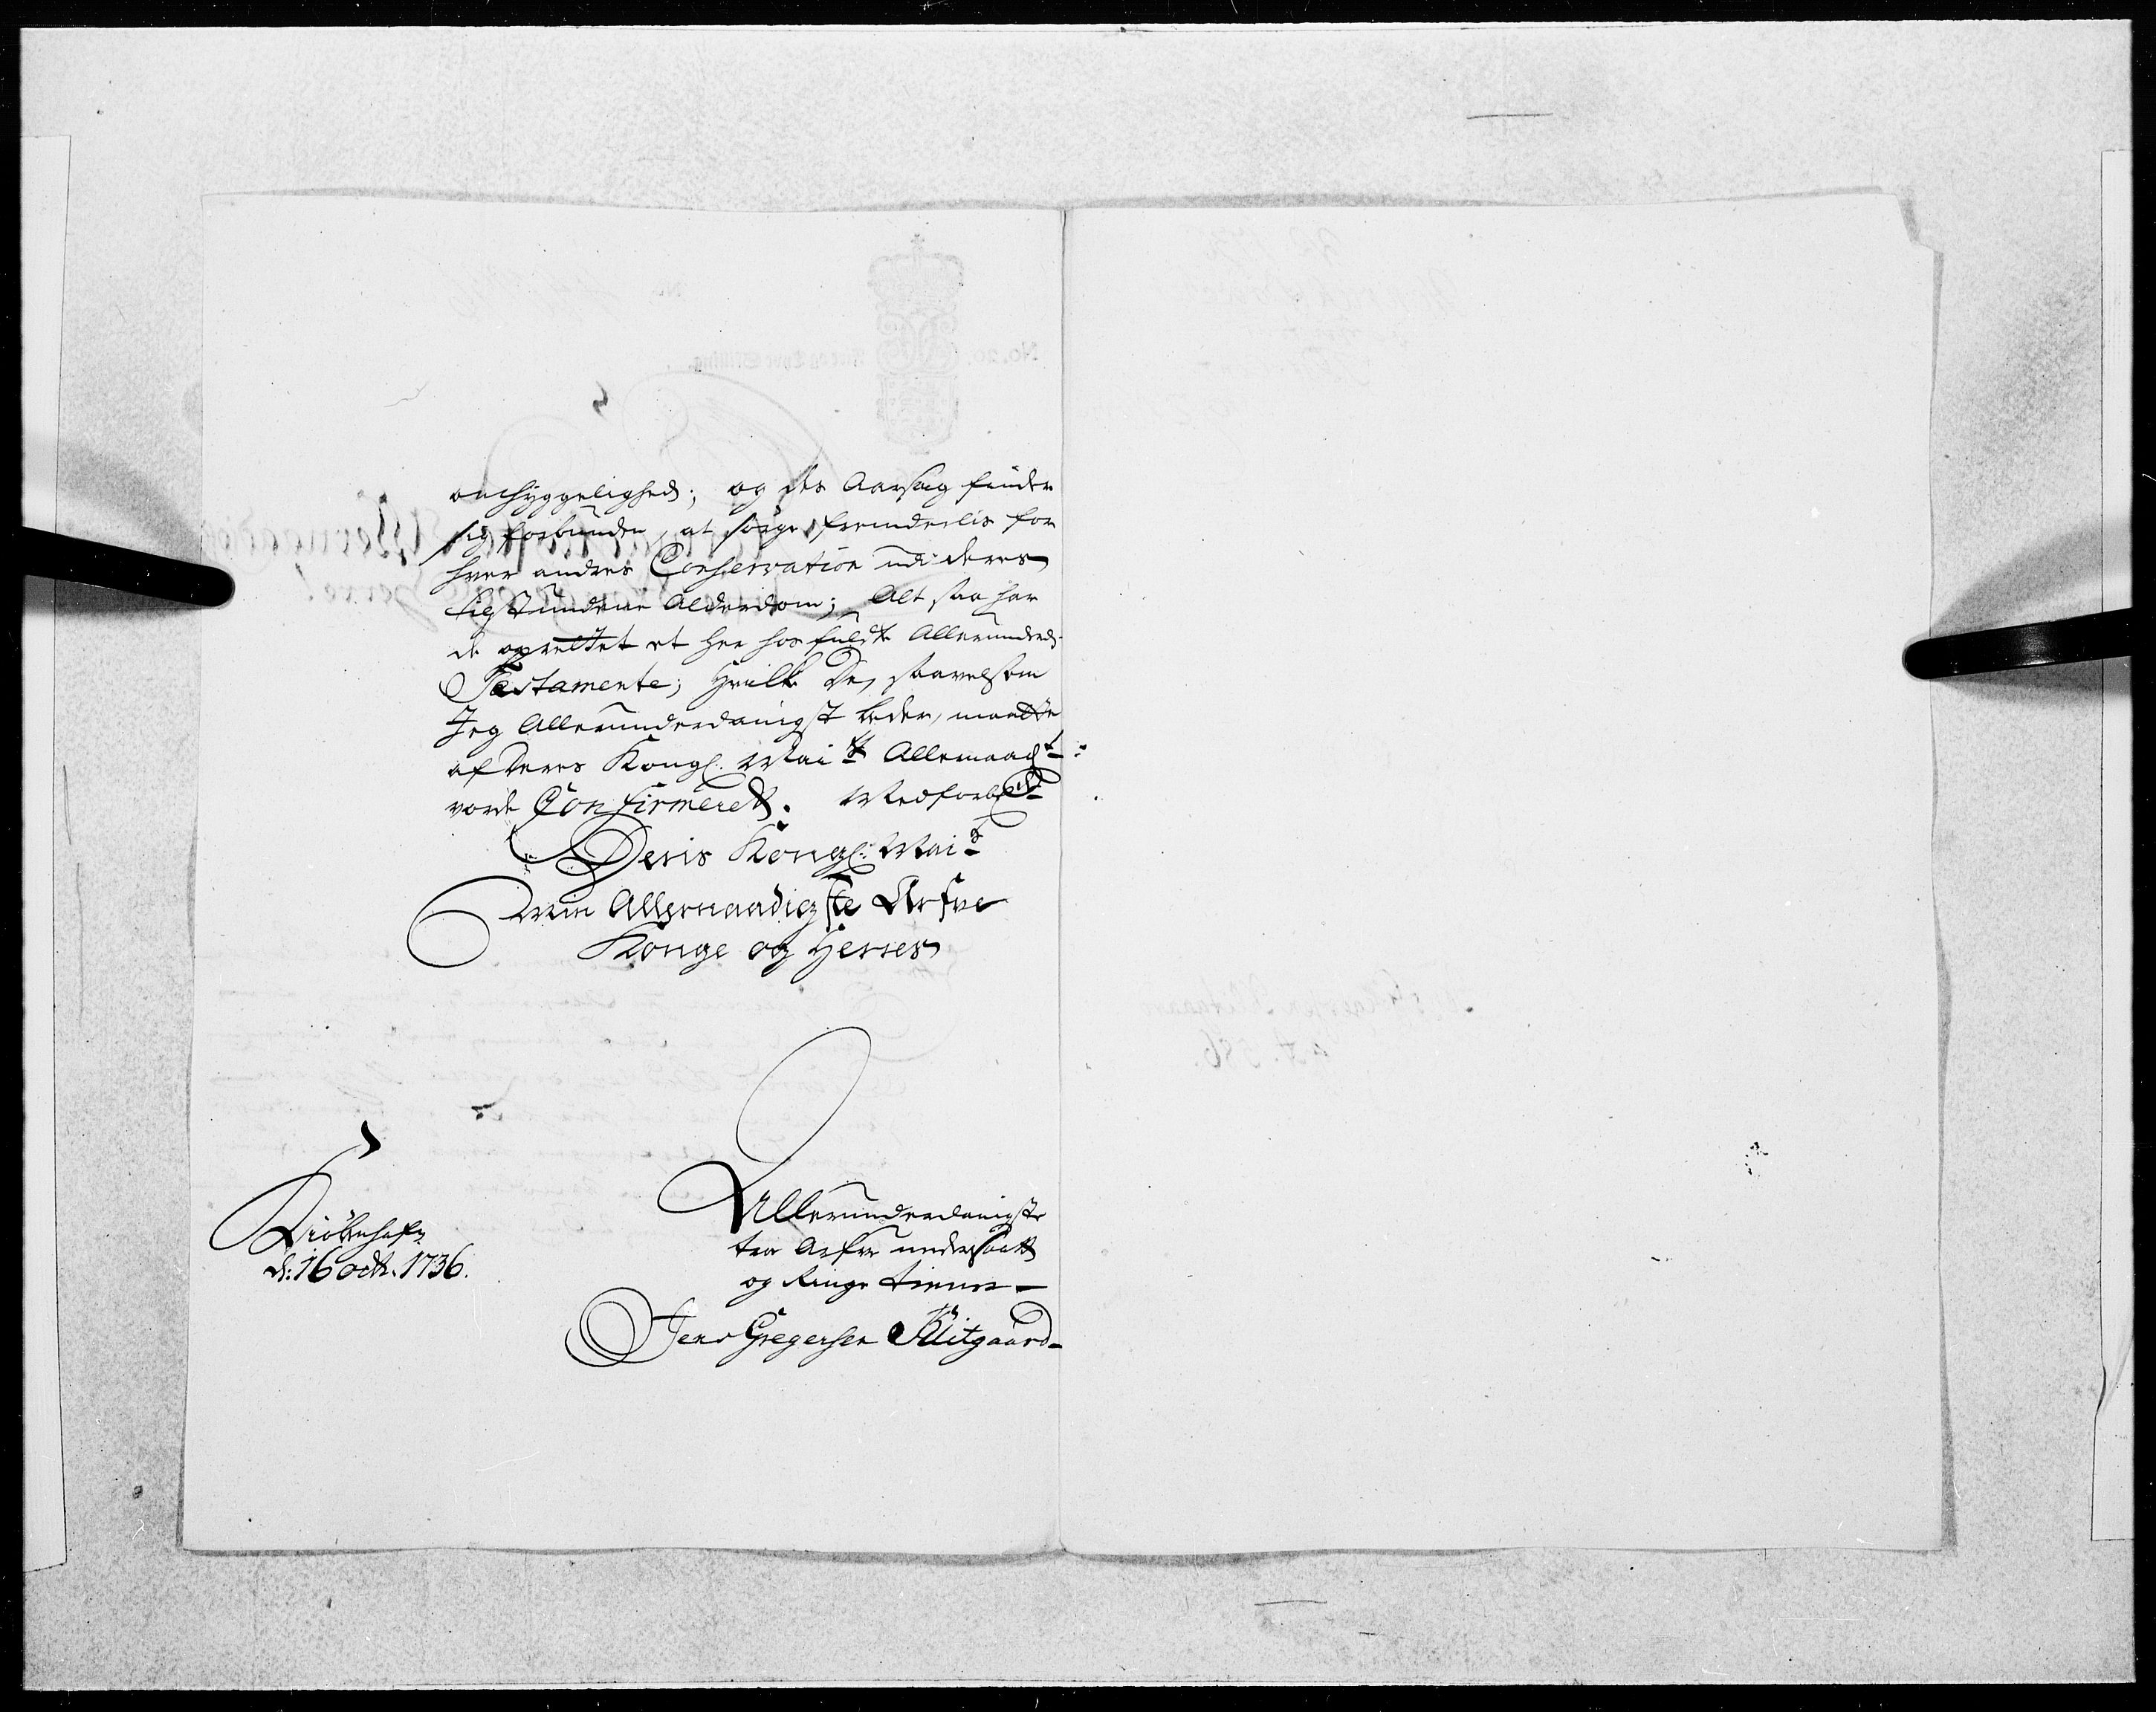 omhyggelighed; og des Aarsag finder
sig forbunden, at sørge fremdeelis for
hver andres Conservation udi deres
tilstundene Alderdom; Alt saa har
de oprettet et her hos fuldt Allerunderd:
Testamente; hvilke De, saavelsom
Jeg Allerunderdanigst beder, maatte
af Deres Kongl: Mai:tt Allernaad:st
vorde Confirmeret. Med forbl:
Deris Kongl: Mai:t
Min Allernaadigste Arfve
Konge og Herres
Kiöbenhafn
d: 16 octb. 1736.
Allerunderdanigste
troe Arfve undersaatt
og Ringe tiener
Jens Gregersen Klitgaard